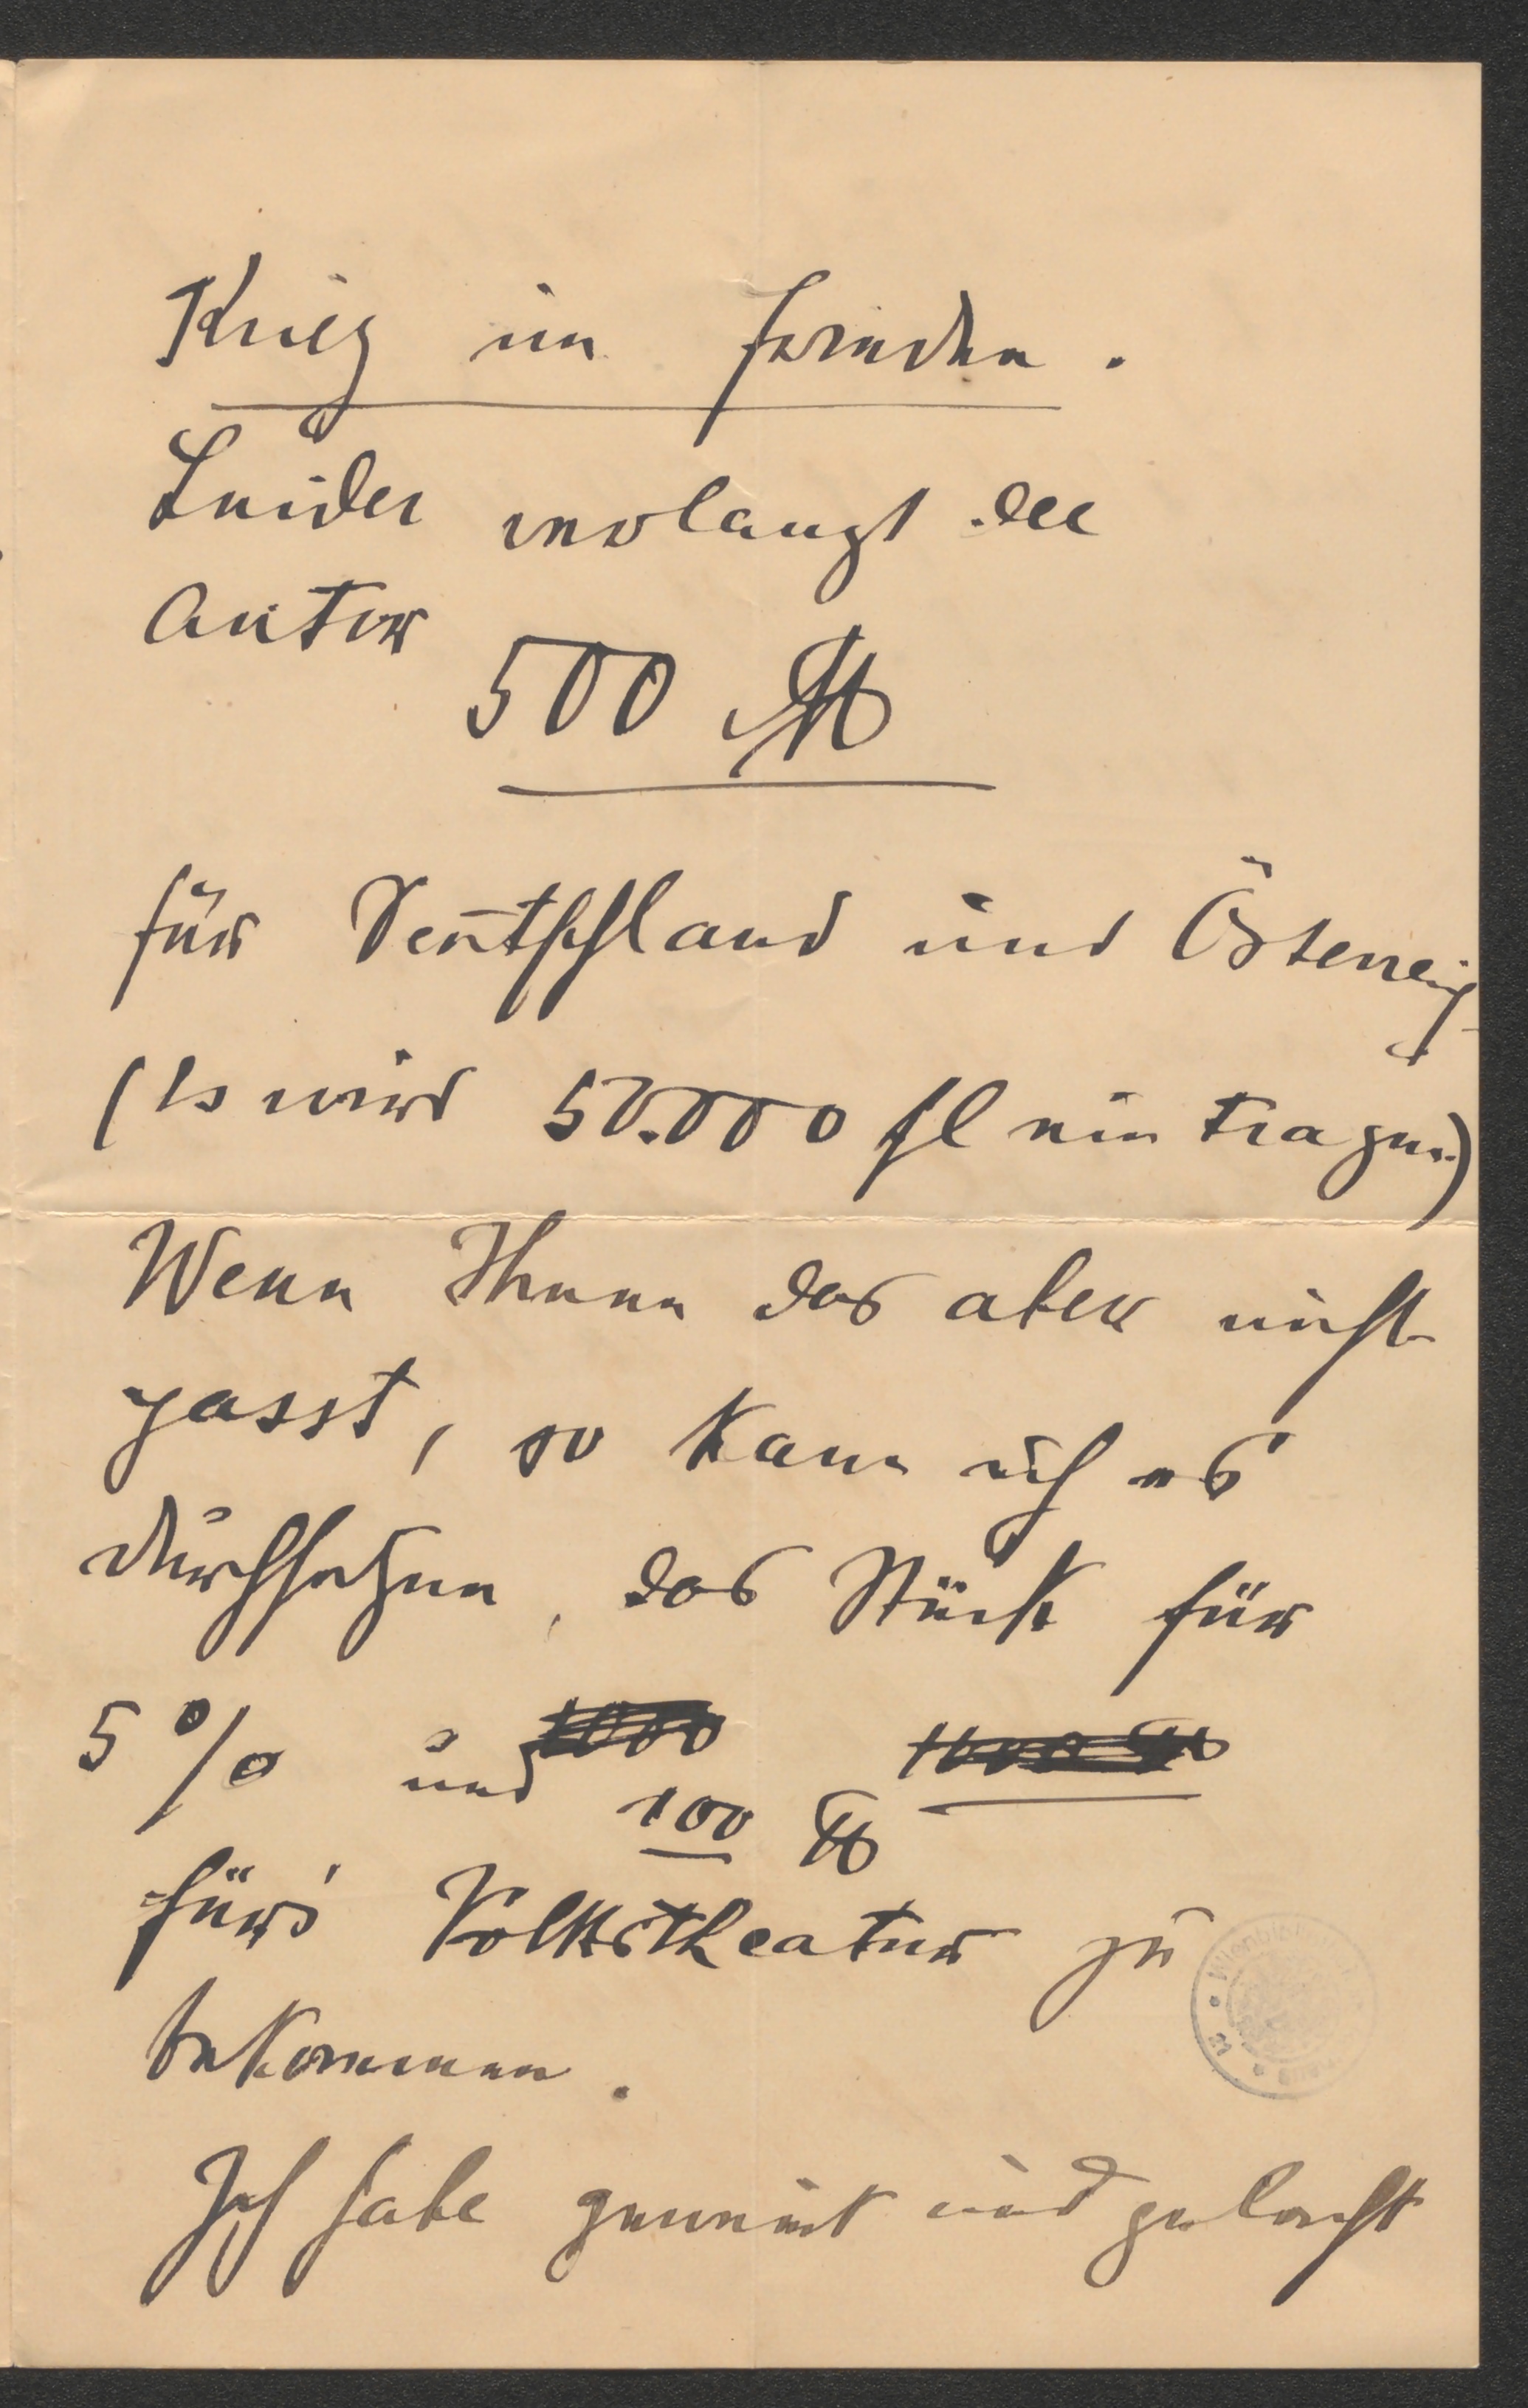 Krieg im Frieden.
Leider verlangt der
Autor
500 ℳ
für Deutschland und Österreich
(Es wird 50.000 fl eintragen)
Wenn Ihnen das aber nicht
passt, so kann ich es
durchsetzen, das Stück für
5 % und 1000
100 ℳ
fürs Volkstheater zu
bekommen.
Ich habe geweint und gelacht